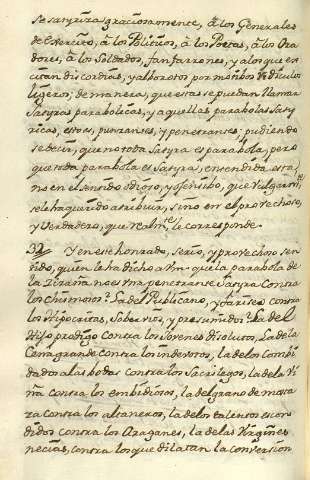 se satyriza graciosamente, â los Generales
de Exercito, â los Politicos, â los Poetas, â los Ora
dores, â los Soldados, fanfarrones, y alos que ex
citan discordias, y alborotos por motibos ridiculos
ligeros; de manera, que estas se puedan llamar
Satyras parabolicas, y aquellas parabolas Saty
ricas, estos, punzantes, y penetrantes; pudiendo
se decir, que no toda Satyra es parabola, pero
que toda parabola es Satyra, entendida esta,
no en el sentido odioso, y ofensibo, que Vulgarmte
se le ha querido atribuir, sino en el provechoso,
y Verdadero, que realmte le corresponde.
32 Y en ese honrado, serio, y provechoso sen
tido, quien le ha dicho a Vm. que la parabola de
la Zizaña no es Vna penetrante Satyra Contra
los chismosos? La del Publicano, y fariseo contra
los Hipocritas, Sobervios, y presumidos? La del
Hijo prodigo contra los Jovenes disolutos, La de la
Cena grande contra los indevotos, la de los Combi
dados alas bodas contra los Sacrilegos, la de la Vi
ña contra los embidiosos, la del grano de mosta
za contra los altaneros, la de los talentos escon
didos contra los Araganes, la de las Virgines
necias, contra los que dilatan la conversion